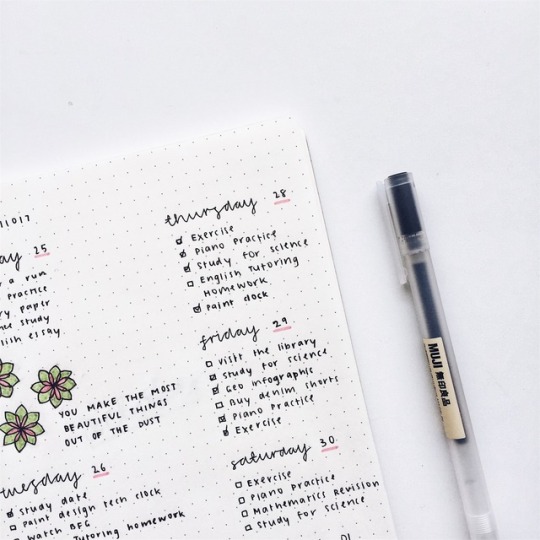 25
a run
practice
paper
study
essay
YOU MAKE THE MOST
BEAUTIFUL THINGS
OUT OF THE DUST
26
study date
paint design tech clock
watch BFG
Tutoring homework
thursday 28
Exercise
Piano Practice
Study for science
English Tutoring
Homework
Paint clock
friday 29
Visit the library
Study for science
Geo infographic
Buy denim shorts
Piano Practice
Exercise
saturday 30
Exercise
Piano Practice
Mathematics Revision
Study for science
MUJI 無印良品